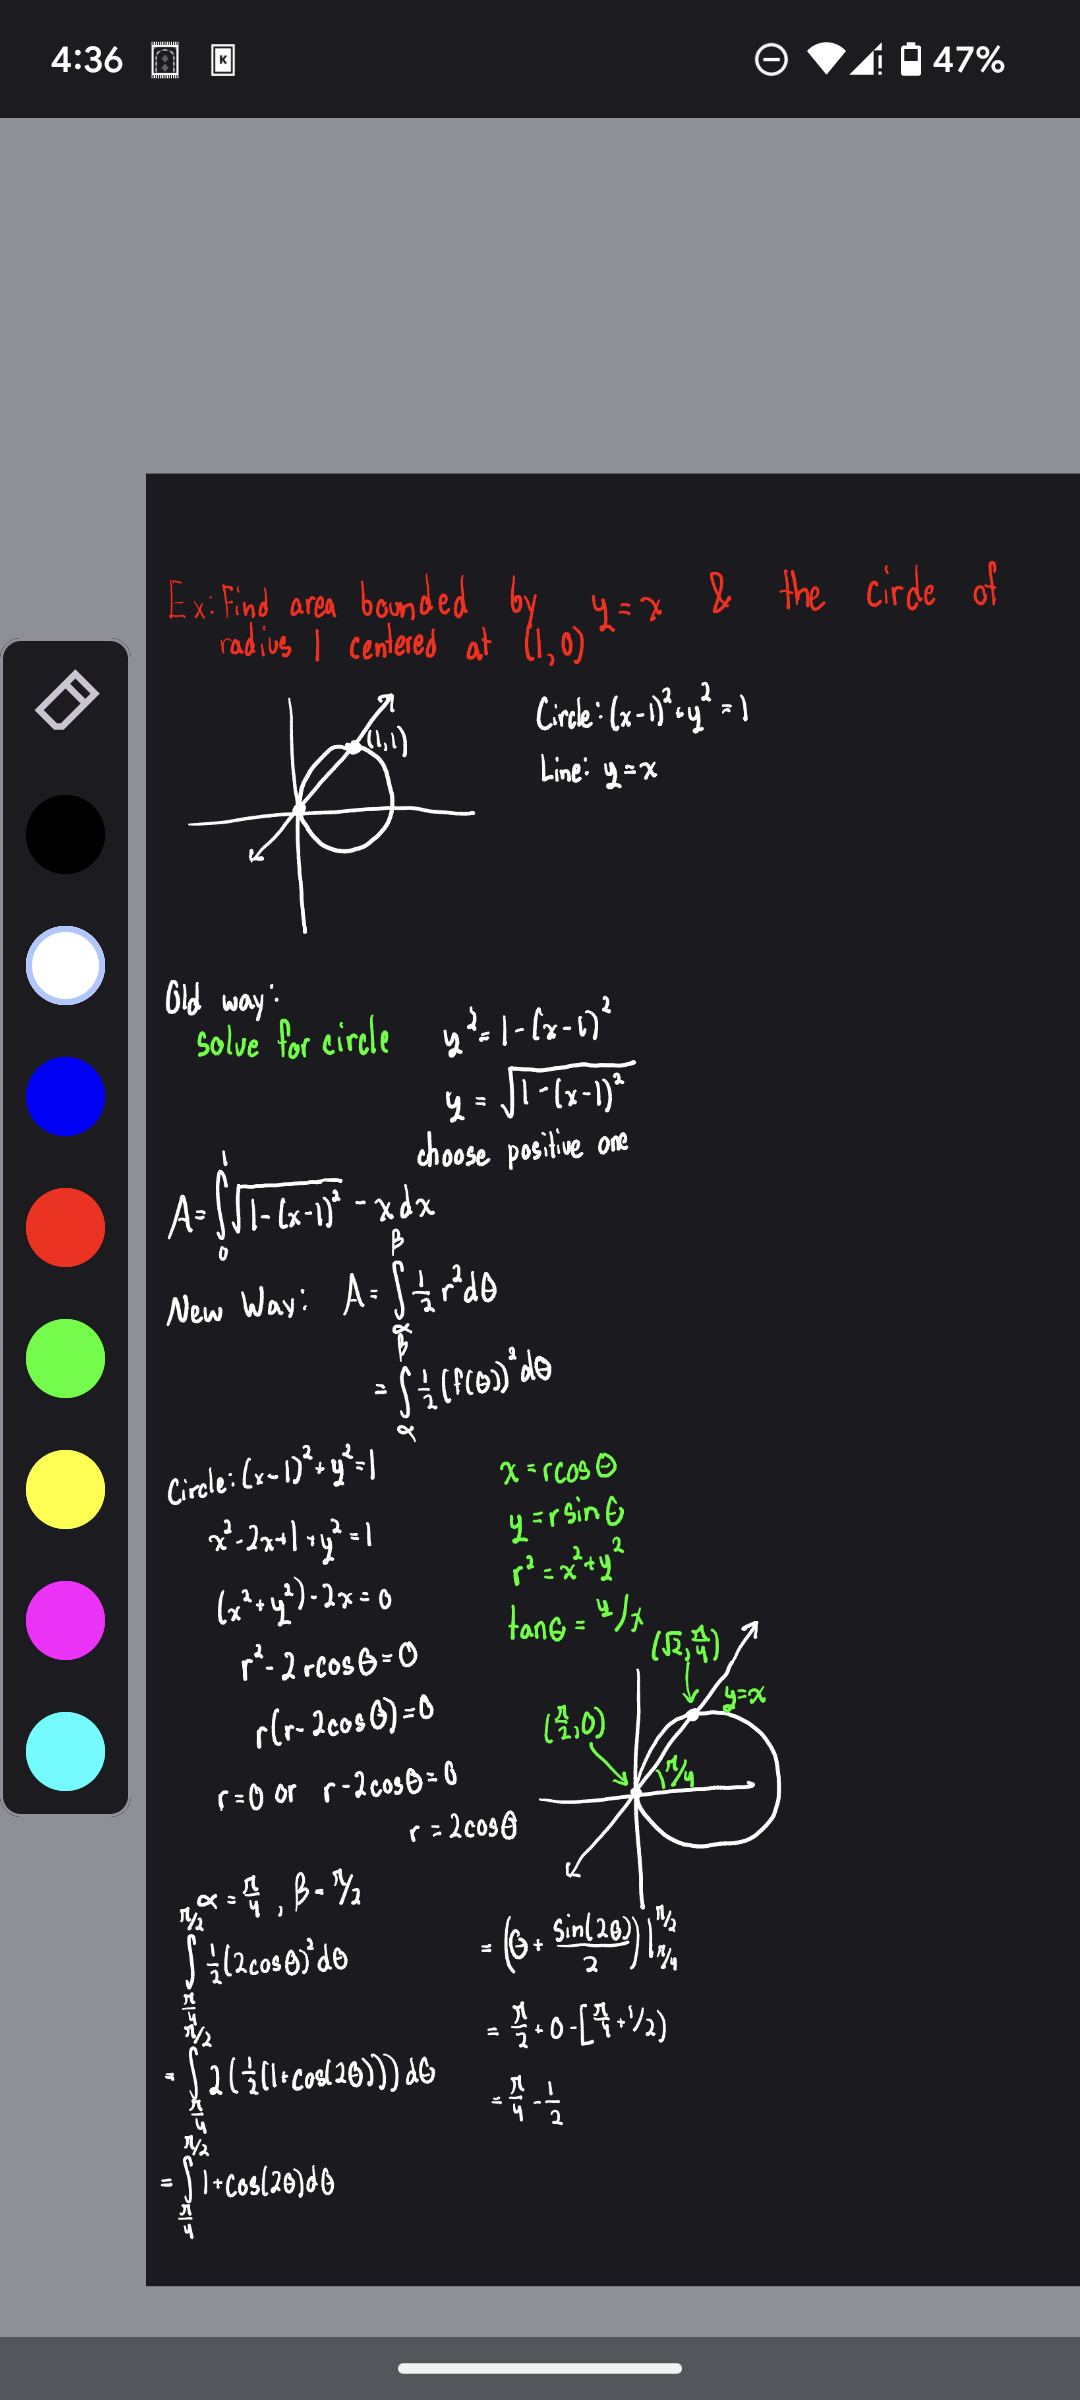 4:36
K
47%
Ex: Find area bounded by y=x & the circle of
radius 1 centered at (1,0)
(1,1)
Circle: (x-1)²+y²=1
Line: y=x
Old way:
solve for circle
y²=1-(x-1)²
y=√(1-(x-1)²)
choose positive one
A=∫₀¹√(1-(x-1)²) - x dx
New Way: A=∫_α^β ½ r² dθ
=∫_α^β ½ (f(θ))² dθ
Circle: (x-1)²+y²=1
x²-2x+1+y²=1
(x²+y²)-2x=0
r²-2rcosθ=0
r(r-2cosθ)=0
r=0 or r-2cosθ=0
r=2cosθ
x=rcosθ
y=rsinθ
r²=x²+y²
tanθ=y/x
(√2, π/4)
y=x
(π/2, 0)
π/4
α=π/4, β=π/2
∫_{π/4}^{π/2} ½(2cosθ)² dθ
=∫_{π/4}^{π/2} 2(½(1+cos(2θ))) dθ
=∫_{π/4}^{π/2} 1+cos(2θ)dθ
=(θ+sin(2θ)/2)|_{π/4}^{π/2}
=π/2+0-[π/4+1/2)
=π/4-1/2